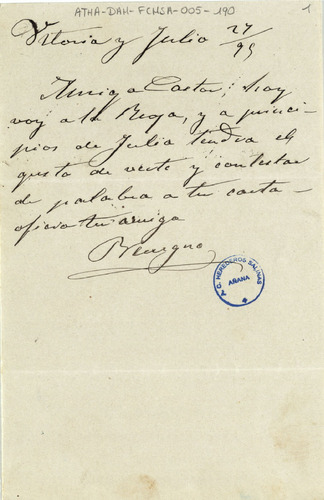 ATHA-DAH-FCHSA-005-190
1
Vitoria y Julio 27/95
Amigo Castor: hoy
voy a la Rioja, y a princi-
pios de Julio tendre el
gusto de verte y contestar
de palabra a tu carta-
oficio tu amigo
Benigno
T. C. HEREDEROS SALINAS
AÑANA